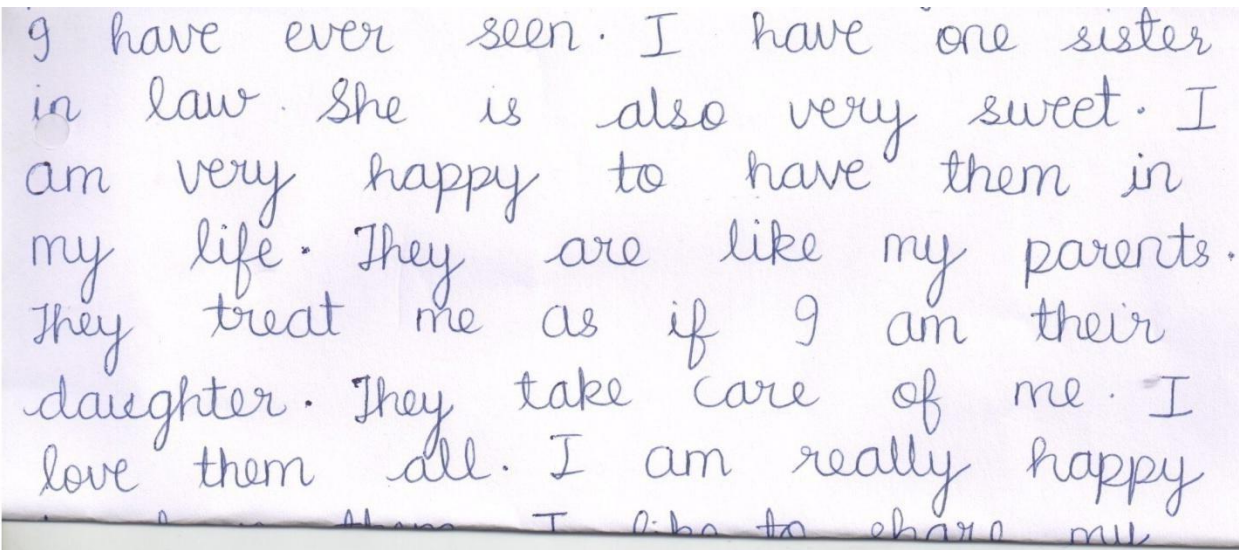 I have ever seen. I have one sister
in law. She is also very sweet. I
am very happy to have them in
my life. They are like my parents.
They treat me as if I am their
daughter. They take care of me. I
love them all. I am really happy
them I like to share my